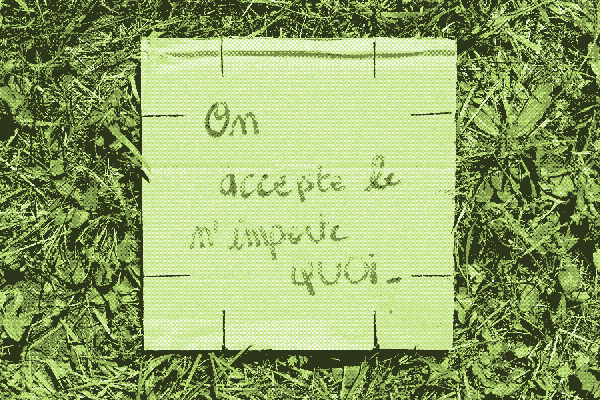 On
accepte le
n'importe
QUOI_